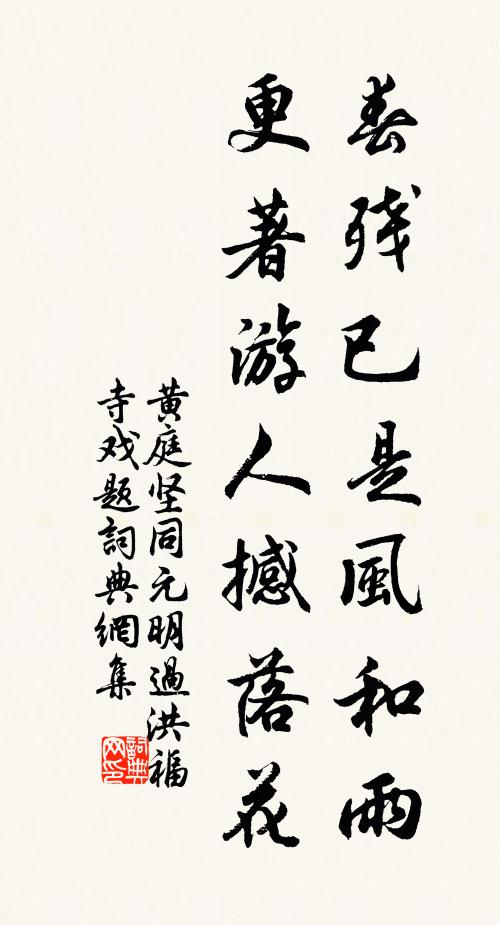 春残已是風和雨
更著游人撼落花
黄庭坚同元明過洪福
寺戏题詞典網集
詞典网印